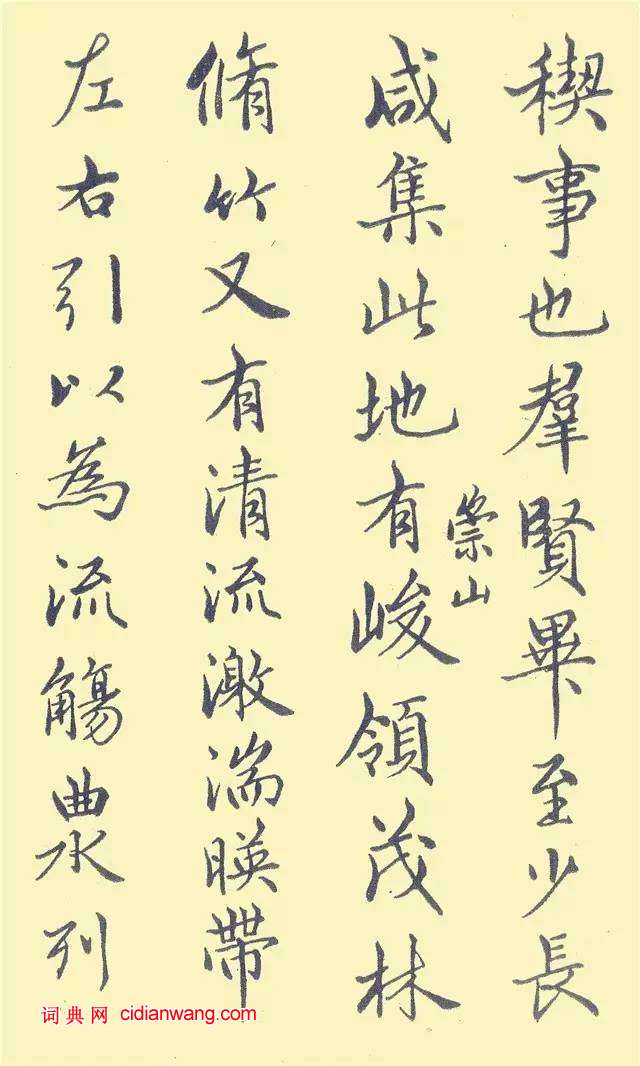 稧事也羣賢畢至少長
咸集此地有峻領茂林
崇山
脩竹又有清流激湍暎帶
左右引以為流觴曲水列
词典网 cidianwang.com